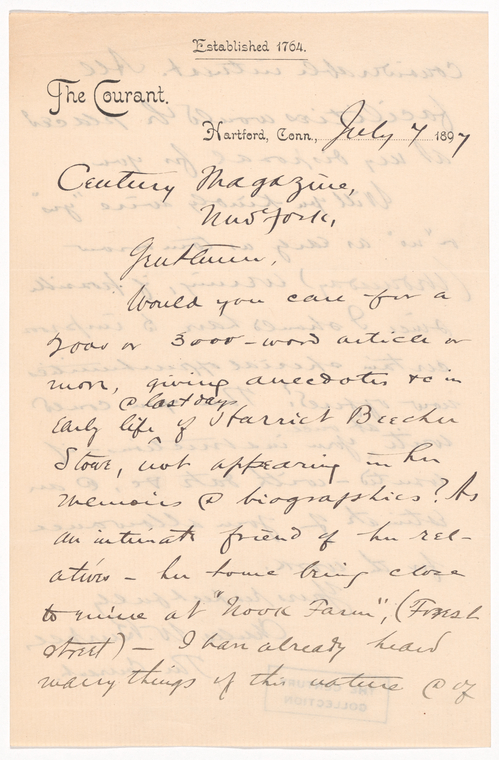 Established 1764.
The Courant.
Hartford, Conn., July 7 1897
Century Magazine,
New York,
Gentlemen,
Would you care for a
2000 or 3000-word article or
more, giving anecdotes &c in
@ last days
early life of Harriet Beecher
Stowe, not appearing in her
memoirs @ biographies? As
an intimate friend of her rel-
atives - her home being close
to mine at "Nook Farm", (Forest
street) - I have already heard
many things of this nature @ of